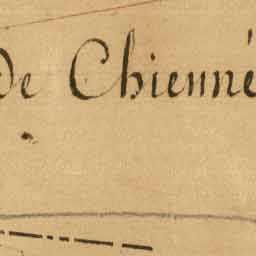 de Chienné